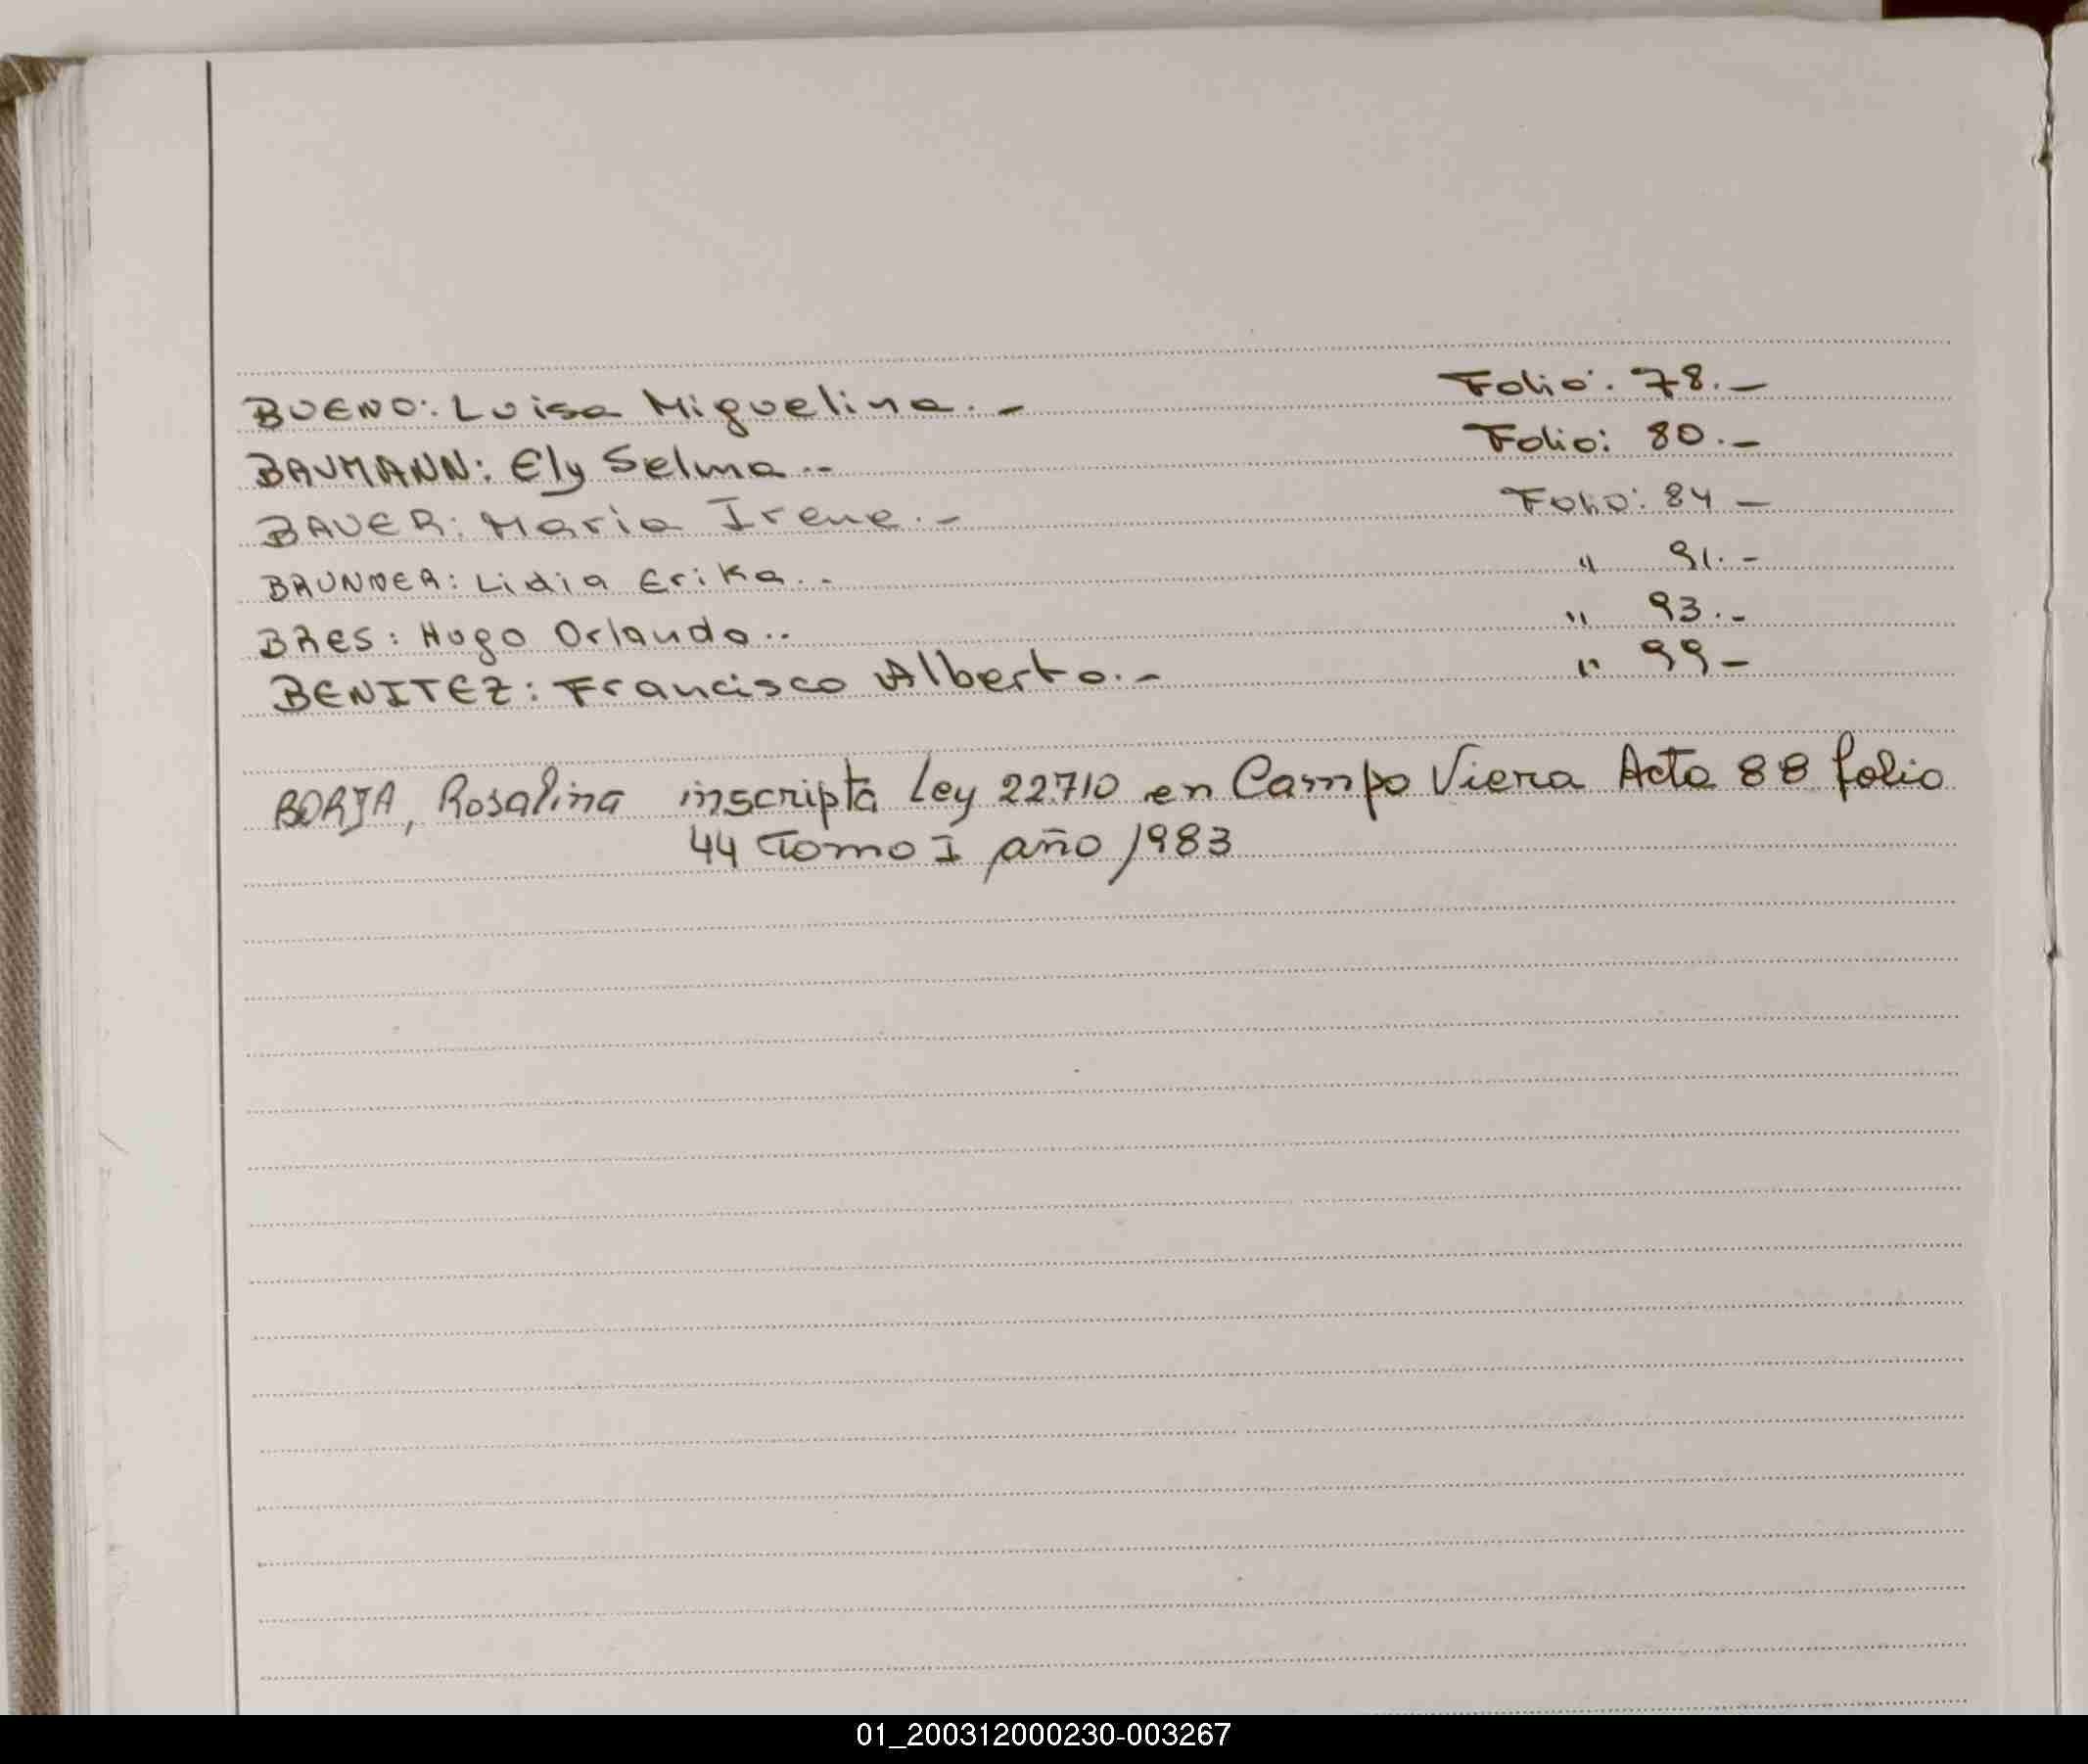 BUENO: Luisa Miguelina.- Folio: 78.-
BAUMANN: Ely Selma.- Folio: 80.-
BAUER: Maria Irene.- Folio: 84 -
BRUNNER: Lidia Erika.. " 91.-
BRES: Hugo Orlando.. " 93.-
BENITEZ: Francisco Alberto.- " 99-
BORJA, Rosalina inscripta Ley 22.710 en Campo Viera Acta 88 folio
44 Tomo I año 1983
01_200312000230-003267